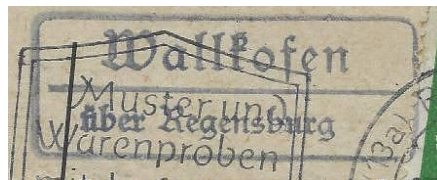 Wallkofen
Muster und
über Regensburg
Warenproben